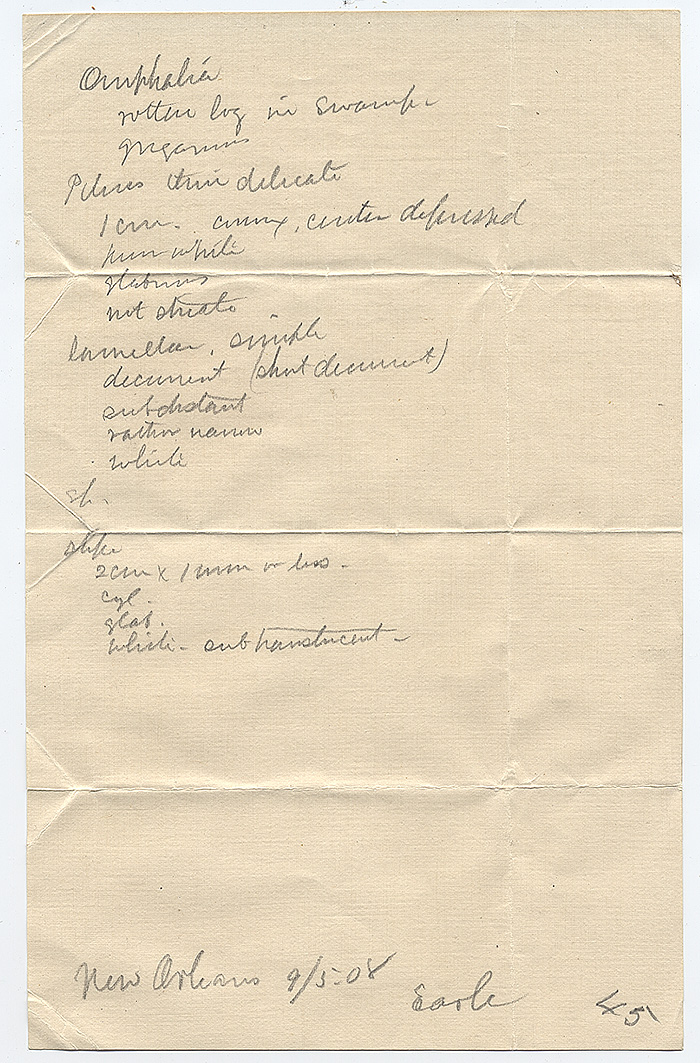 Omphalia
rotten log in swamp -
gregarious
Pileus thin delicate
1 cm. convex, center depressed
pure white
glabrous
not striate
lamellae, simple
decurrent (short decurrent)
subdistant
rather narrow
white
sp.
stipe
2 cm x 1 mm or less -
cyl.
glab.
white - subtranslucent -
New Orleans 9/5-08
Earle
45